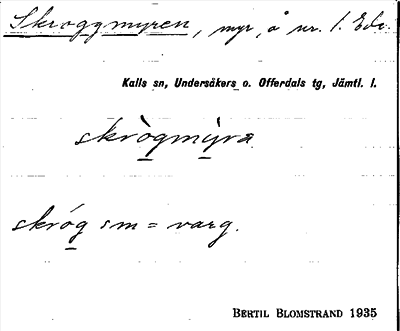 Skroggmyren, myr, å nr. 1. Ede.
Kalls sn, Undersåkers o. Offerdals tg, Jämtl. l.
skrògmỳra
skróg sm = varg.
BERTIL BLOMSTRAND 1935